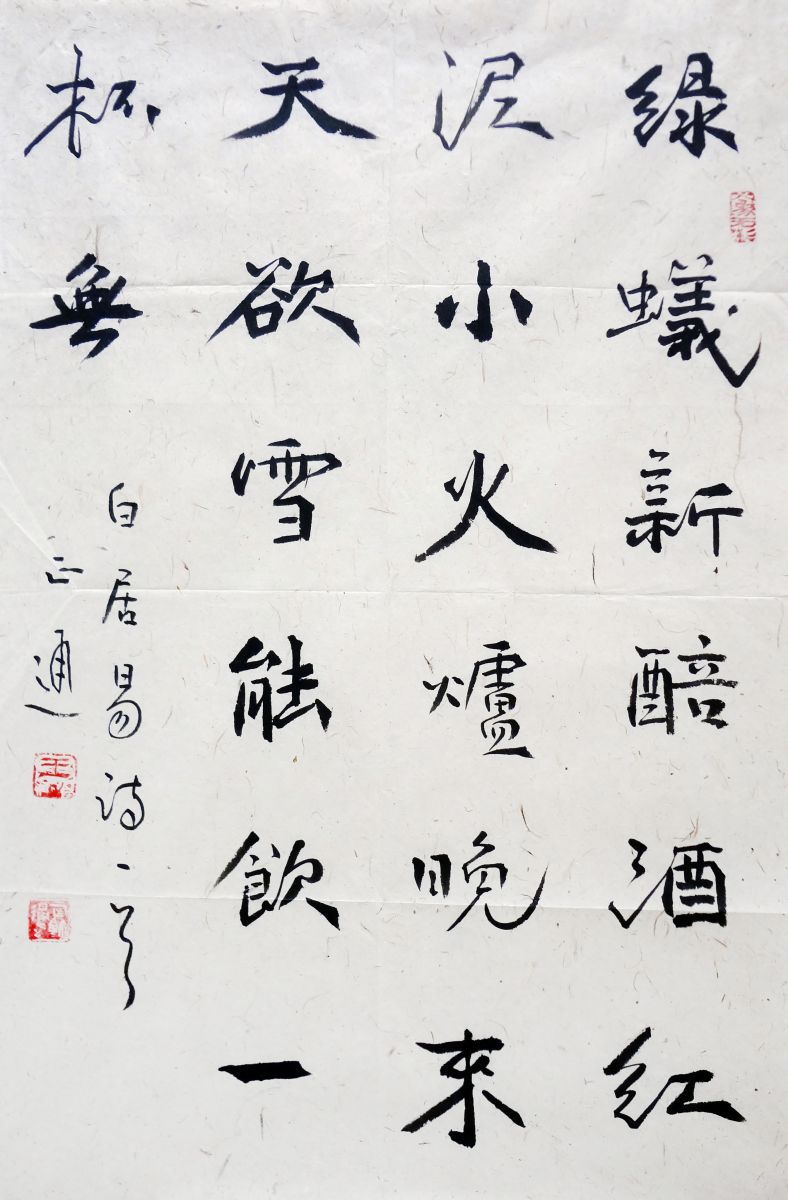 綠蟻新醅酒紅
泥小火爐晚來
天欲雪能飲一
杯無
白居易詩一首
正通